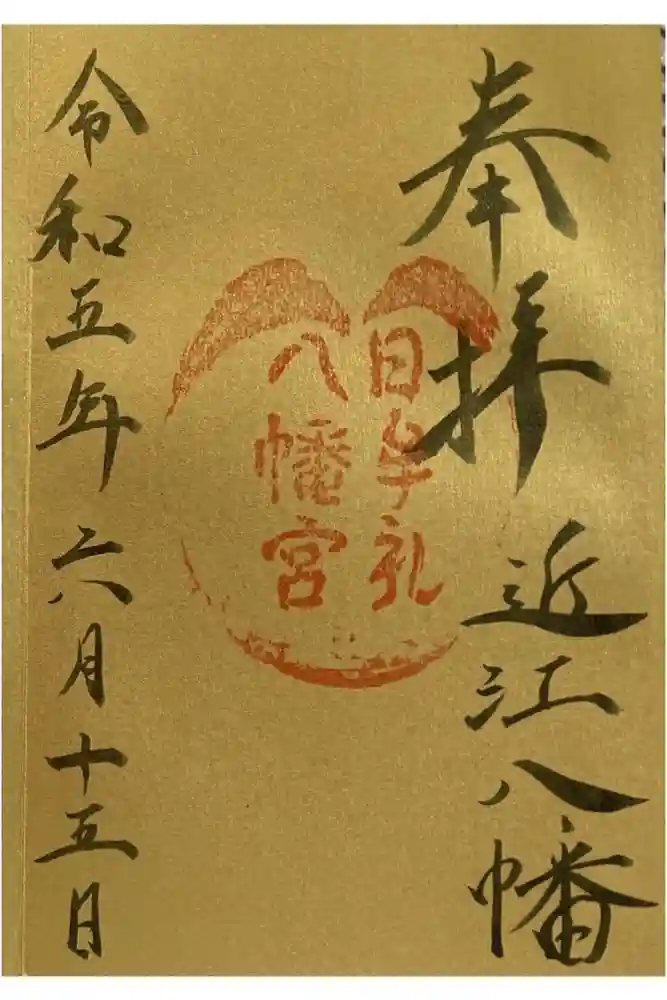 奉拝
近江八幡
日牟礼
八幡宮
令和五年六月十五日